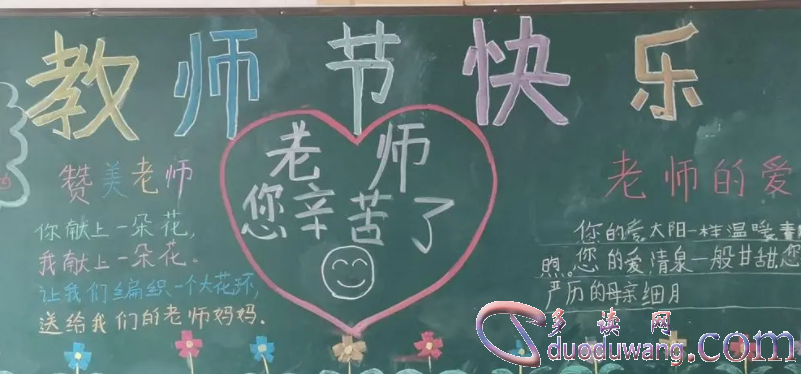 教师节快乐
赞美老师
你献上一朵花,
我献上一朵花。
让我们编织一个大花环,
送给我们的老师妈妈.
老师
您辛苦了
老师的爱
您的爱,太阳一样温暖
煦。您的爱,清泉一般甘甜,您
严历的母亲细月
多读网
duoduwang.com